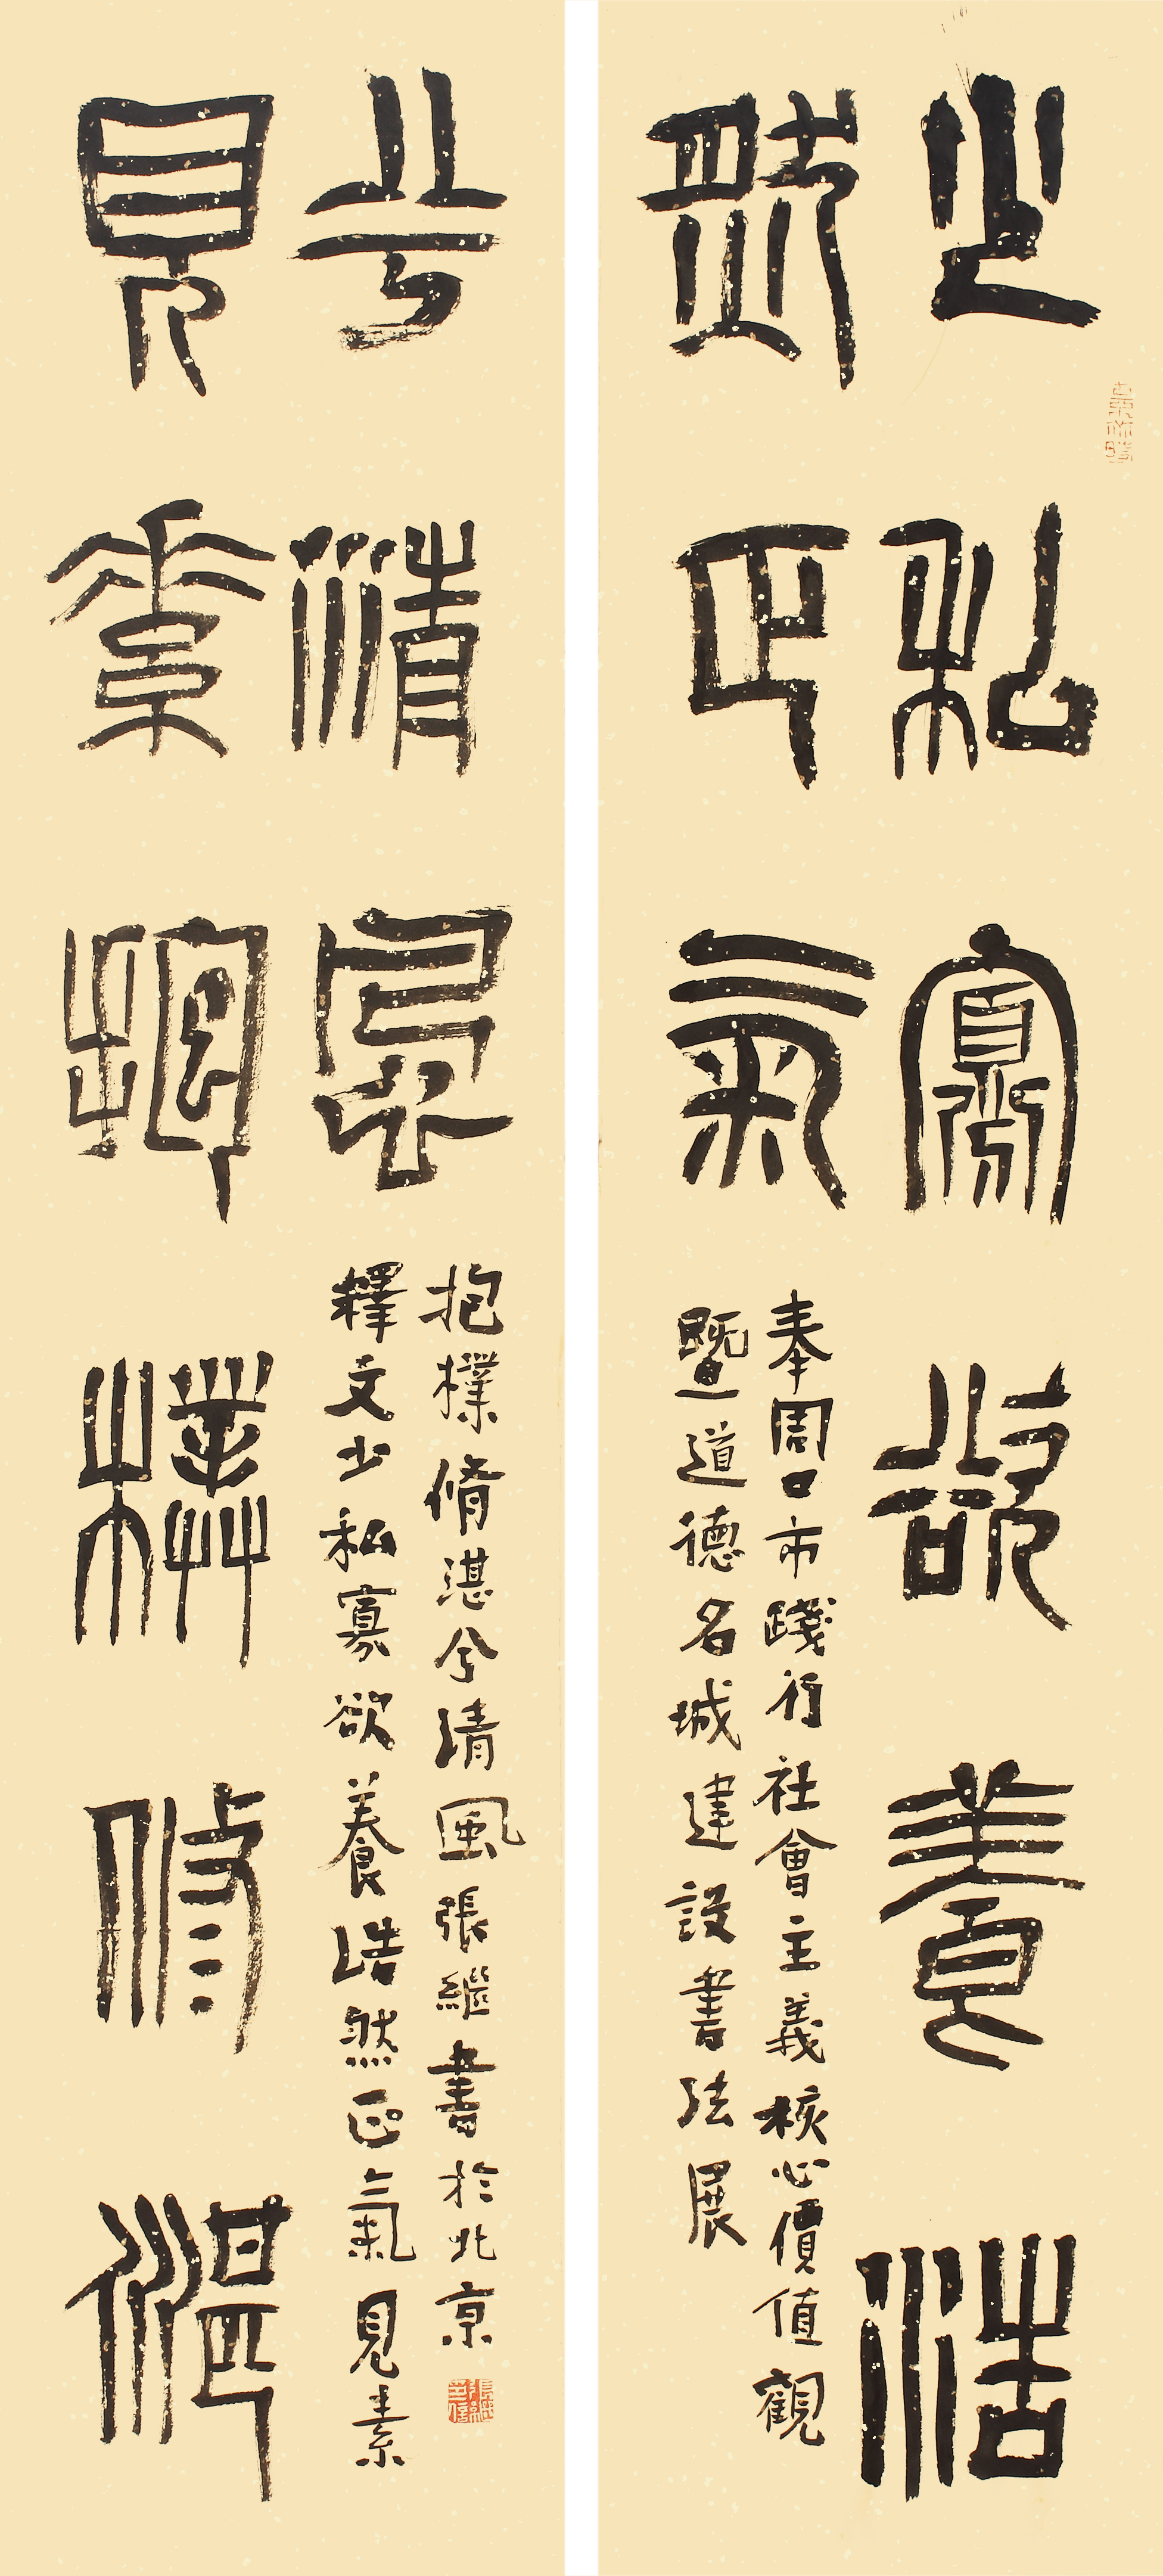 少私寡欲養浩
然正氣
奉周口市踐行社會主義核心價值觀
暨道德名城建設書法展
見素抱樸脩湛
兮清風
釋文少私寡欲養浩然正氣見素
抱樸脩湛兮清風張繼書於北京